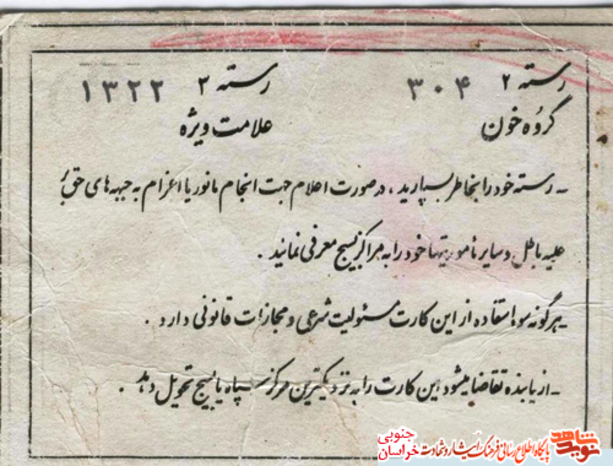 رسته ۲ ۳۰۴ رسته ۳ ۱۳۲۲
گروه خون علامت ویژه
- رسته خود را بخاطر بسپارید ، در صورت اعلام جهت انجام مانور یا اعزام به جبهه های حق
علیه باطل و سایر مأموریتها خود را به مراکز بسیج معرفی نمائید .
- هرگونه سوء استفاده از این کارت مسئولیت شرعی و مجازات قانونی دارد .
- از یابنده تقاضا میشود این کارت را به نزدیکترین مرکز سپاه یا بسیج تحویل دهد .
نوید شاهد پایگاه اطلاع رسانی فرهنگ ایثار و شهادت خراسان جنوبی